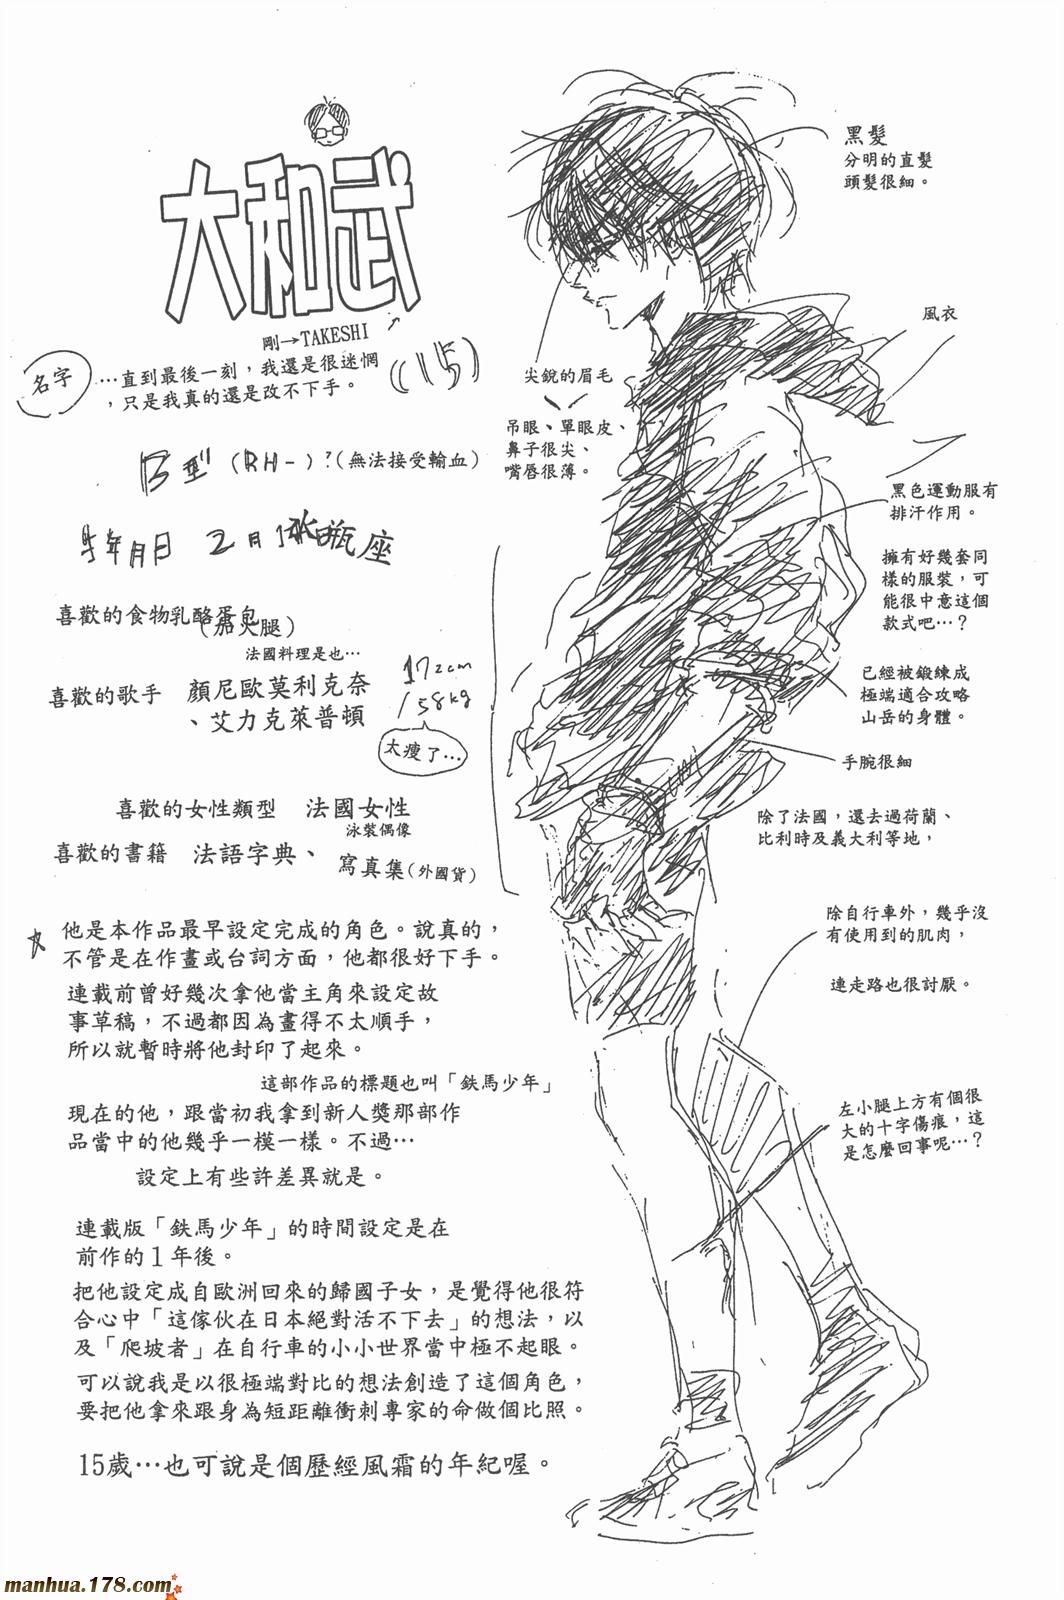 大和武
剛→TAKESHI
(15)
名字
…直到最後一刻，我還是很迷惘
，只是我真的還是改不下手。
B型（RH－）？（無法接受輸血）
年月日 2月 水瓶座
喜歡的食物乳酪蛋包
（加火腿）
法國料理是也…
喜歡的歌手 顏尼歐莫利克奈
、艾力克萊普頓
172cm
/58kg
太瘦了…
喜歡的女性類型 法國女性
泳裝偶像
喜歡的書籍 法語字典、
寫真集（外國貨）
☆
他是本作品最早設定完成的角色。說真的，
不管是在作畫或台詞方面，他都很好下手。
連載前曾好幾次拿他當主角來設定故
事草稿，不過都因為畫得不太順手，
所以就暫時將他封印了起來。
這部作品的標題也叫「鉄馬少年」
現在的他，跟當初我拿到新人獎那部作
品當中的他幾乎一模一樣。不過…
設定上有些許差異就是。
連載版「鉄馬少年」的時間設定是在
前作的1年後。
把他設定成自歐洲回來的歸國子女，是覺得他很符
合心中「這傢伙在日本絕對活不下去」的想法，以
及「爬坡者」在自行車的小小世界當中極不起眼。
可以說我是以很極端對比的想法創造了這個角色，
要把他拿來跟身為短距離衝刺專家的命做個比照。
15歲…也可說是個歷經風霜的年紀喔。
黑髮
分明的直髮
頭髮很細。
風衣
尖銳的眉毛
吊眼、單眼皮、
鼻子很尖、
嘴唇很薄。
黑色運動服有
排汗作用。
擁有好幾套同
樣的服裝，可
能很中意這個
款式吧…？
已經被鍛鍊成
極端適合攻略
山岳的身體。
手腕很細
除了法國，還去過荷蘭、
比利時及義大利等地，
除自行車外，幾乎沒
有使用到的肌肉，
連走路也很討厭。
左小腿上方有個很
大的十字傷痕，這
是怎麼回事呢…？
manhua.178.com